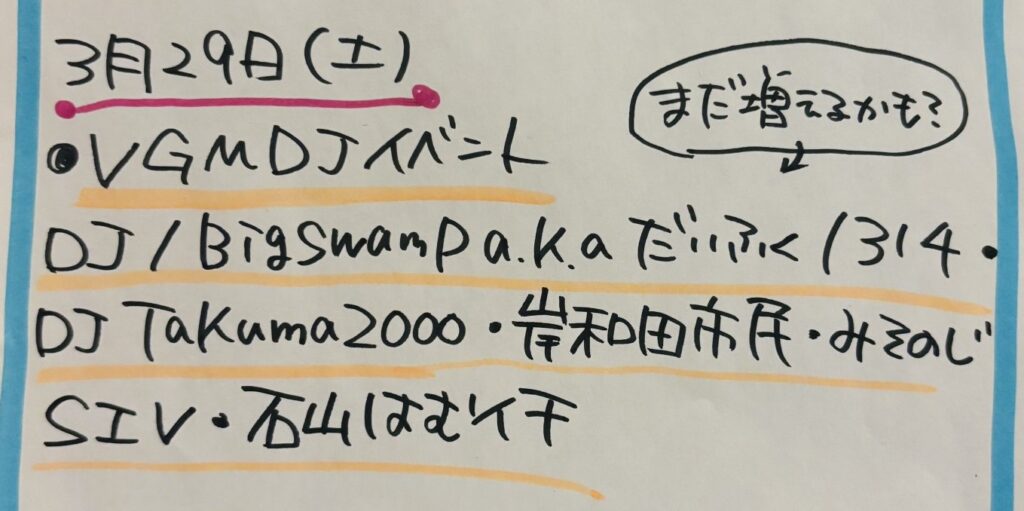 3月29日(土)
まだ増えるかも?
•VGMDJイベント
DJ/BigSwamp a.k.a だいふく/314・
DJ Takuma2000・岸和田市民・みそのじ
SIV・石山はむイチ